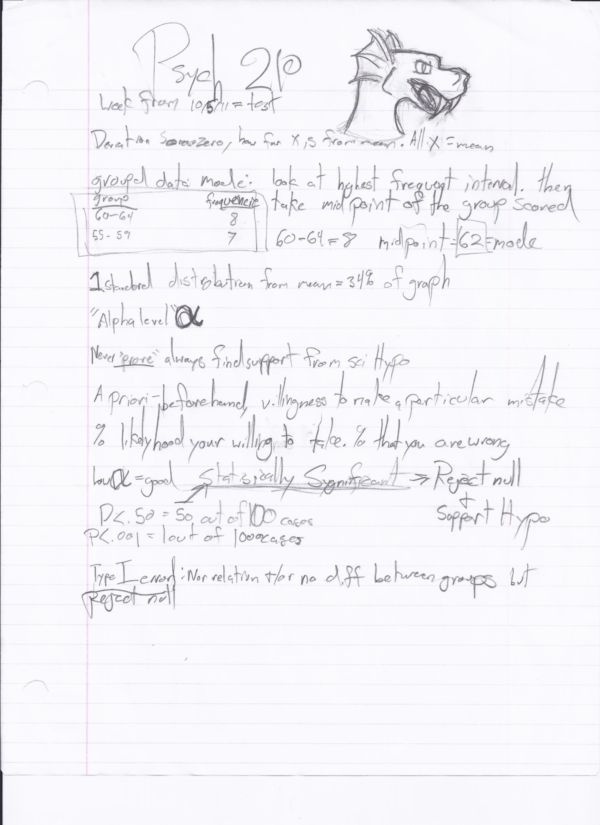 Psych 210
Week from 10/5/11 = test
how far X is from mean. All X = mean
group data mode: look at highest frequent interval. then
group frequencie take midpoint of the group scored
60-64 8
55-59 7 60-64=8 midpoint=62=mode
1 standard distribution from mean = 34% of graph
"Alpha level" α
Never "prove" always find support from sci Hypo
A priori - beforehand, willingness to make a particular mistake
% likelyhood your willing to take. % that you are wrong
Low α = good Statistically Significant => Reject null
+
Support Hypo
P<.50 = 50 out of 100 cases
P<.001 = 1 out of 1000 cases
Type I error: Nor relation +/or no diff between groups but
Reject null